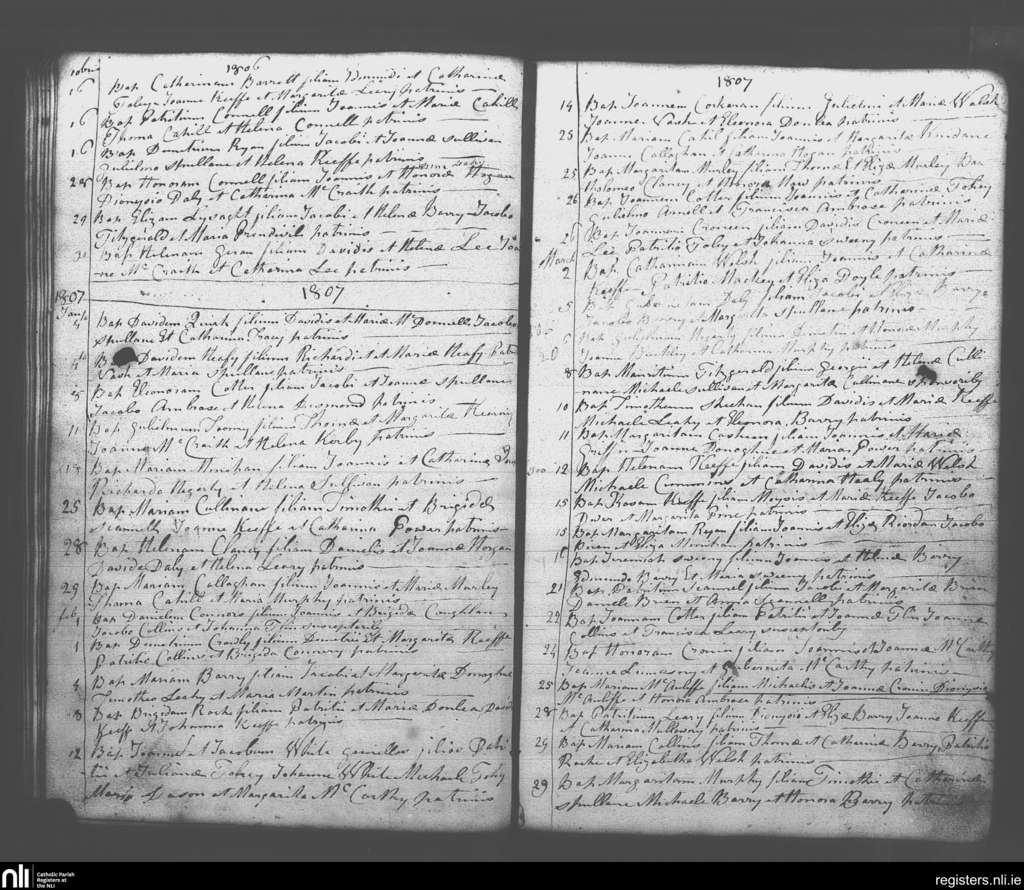 1806
16 Bap Catherinam Barrett filiam Edmundi et Catharinæ
Tobeyn Joanne Keeffe et Margarita Leery patrinis
16 Bap Patritium Connell filium Joannis et Mariæ Cahill
Thoma Cahill et Helena Connell patrinis
16 Bap Demetrium Ryan filium Jacobi et Joannæ Sullivan
Spullane et Helena Keeffe patrinis
28 Bap Honoram Connell filiam Joannis et Honoræ Hogan
Dionysio Daly et Catharina Mc Craith patrinis
29 Bap Elizam Lysaght filiam Jacobi et Helenæ Barry Jacobo
Fitzgerald et Maria Prendivil patrinis
31 Bap Helenam filiam Davidis et Helenæ Lee Joan
ne Mc Craith et Catharina Lee patrinis
1807
1807
Bap Davidem Quirk filium Davidis et Mariæ Mc Donnell Jacobo
Spullane Et Catharina Tracy patrinis
4 Bap Davidem Heafy filium Richardi et Mariæ Heafy
Cash et Maria Spullane patrinis
5 Bap Elonoram Cotter filiam Jacobi et Joannæ Spullane
Jacobo Ambrose et Helena Desmond patrinis
11 Bap Gulielmum filium Thomæ et Margaritæ
Joanne Mc Craith et Helena Kerby patrinis
Bap Mariam Minihan filiam Joannis et Catharinæ
Richardo Hegerty et Helena Sullivan patrinis
25 Bap Mariam Cullinane filiam Timothei et Brigidæ
Scannell Joanne Keeffe et Catharina Power patrinis
28 Bap Helenam Clancy filiam Danielis et Joannæ Horgan
Davide Daly et Helena Leary patrinis
29 Bap Mariam Callaghan filiam Joannis et Mariæ Murley
Thoma Cahill et Maria Murphy patrinis
Feb 1 Bap Danielem Connors filium Joannis et Brigidæ Coughlan
Jacobo Collins et Johanna Flin susceptoribus
1 Bap Demetrium Crowly filium Demetrii Et Margaritæ Keeffe
Patritio Collins et Brigida Connery patrinis
4 Bap Mariam Barry filiam Jacobi et Margaritæ Donoghue
Timotheo Leahy et Maria Martin patrinis
8 Bap Brigidam Roche filiam Patritii et Mariæ Donlea David
Keeff et Johanna Keeff patrinis
12 Bap Joannem et Jacobum White gemellos filios Patri
tii et Julianæ Tobey Johanne White Michaele Tobey
Maria Eason et Margarita Mc Carthy patrinis
1807
14 Bap Joannem Corkeran filium Gulielmi et Mariæ Walsh
Joanne et Eleonora Donlea patrinis
25 Bap Mariam Cahil filiam Joannis et Margaritæ Rindane
Joanne Callaghan et Catharina Hogan patrinis
25 Bap Margaritam Murley filiam Thomæ Et Elizæ Murley Bar
tholomeo Clancy et Honora patrinis
26 Bap Joannem Cotter filium Joannis et Catharinæ Tobey
Gulielmo et Francisca Ambrose patrinis
26 Bap Joannem Croneen filium Davidis Croneen et Mariæ
Lee Patritio Toby et Johanna Sweeny patrinis
March
2 Bap Catharinam Walsh filiam Joannis et Catharinæ
Keeffe Patritio Mackey et Eliza Doyle patrinis
5 Bap Daly filiam Jacobi et Elizæ Barry
Jacobo Barry et Margarita Spullane patrinis
5 Bap Gulielmum filium et Honoræ Murphy
Joanne Buckley et Catharina Murphy patrinis
8 Bap Mauritium Fitzgerald filium Georgii et Helenæ Culli
nane Michaele Sullivan et Margarita Cullinane sponsoribus
10 Bap Timotheum Sheehan filium Davidis et Mariæ Keeffe
Michaele Leahy et Eleonora Barry patrinis
11 Bap Margaritam filiam Joannis et Mariæ
Griffin Joanne Donoghue et Maria Power patrinis
12 Bap Helenam Keeffe filiam Davidis et Mariæ Walsh
Michaele Cummins et Catharina Healy patrinis
15 Bap Keeffe filiam et Mariæ Keeffe Jacobo
Power et Margarita Pine patrinis
15 Bap Margaritam Ryan filiam Joannis et Elizæ Riordan Jacobo
Brien et Eliza Minihan patrinis
Bap Jeremiah Sweeny filium Joannis et Helenæ Barry
Edmundo Barry Et Maria Sweeny patrinis
21 Bap Patritium Scannel filium Jacobi et Margaritæ Brien
Daniele Brien et Anna Scannell patrinis
22 Bap Joannam Cotter filiam Patritii et Joannæ Flin Joanne
Collins et Francisca Leary susceptoribus
24 Bap Honoram Cronin filiam Joannis et Joannæ Mc Carthy
Joanne Lumasny et Mc Carthy patrinis
25 Bap Mariam Mc Auliffe filiam Michaelis et Joannæ Cronin Dionysio
Mc Auliffe et Honora Ambrose patrinis
28 Bap Patritium Leary filium Dionysii et Elizæ Barry Joanne Keeffe
et Catharina Mullowny patrinis
29 Bap Mariam Collins filiam Thomæ et Catharinæ Barry Patritio
Roche et Elizabetha Walsh patrinis
29 Bap Margaritam Murphy filiam Timothei et Catharinæ
Spullane Michaele Barry et Honora Barry patrinis
nli
Catholic Parish
Registers at
the NLI
registers.nli.ie